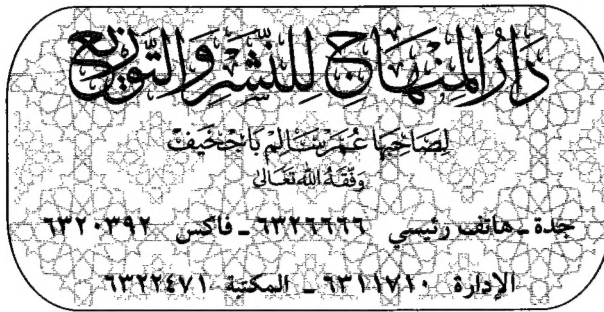 دَارُ المِنْهَاجِ لِلنَّشْرِ وَالتَّوْزِيعِ
لِصَاحِبِهَا عُمَرْسَالِمْ بَاجُخَيْف
وَفَّقَهُ اللهُ تَعَالَى
جدة ـ هاتف رئيسي ٦٣٢٦٦٦٦ ـ فاكس ٦٣٢٠٣٩٢
الإدارة ٦٣١١٧١٠ ـ المكتبة ٦٣٢٢٤٧١